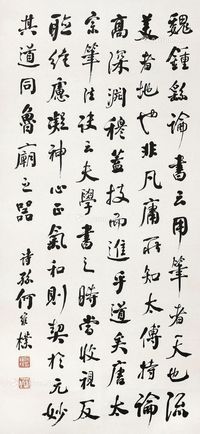 魏鍾繇論書云用筆者天也流
美者地也非凡庸所知太傅特論
高深淵穆蓋技而進乎道矣唐太
宗筆法訣云夫學書之時當收視反
聽絶慮凝神心正氣和則契於元妙
其道同魯廟之器
詩孫何維樸